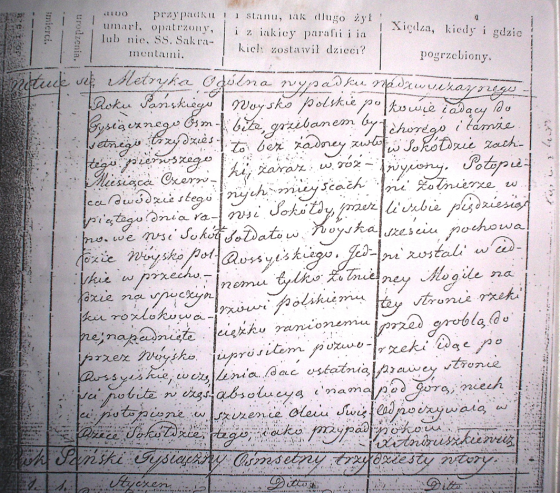 albo przypadku
umarł, opatrzony,
lub nie, SS. Sakra-
mentami.
i stanu, iak długo żył
i z iakiey parafii i ia
kich zostawił dzieci?
Xiędza, kiedy i gdzie
pogrzebiony.
urodzenia.
śmierci.
notuie się Metryka Ogólna wypadku nadzwyczaynego
Roku Pańskiego
Tysiącznego Osm-
setnego trzydzies-
tego pierwszego
Miesiąca Czerw-
ca dwudziestego
piątego dnia ra-
no. we Wsi Sokoł
dzie Woysko Pol-
skie w przecho-
dzie na spoczyn
ku rozlokowa-
ne, napadnięte
przez Woysko
Rossyiskie, w częś
ci pobite w częs-
ci potopione w
Rzece Sokołdzie.
Woysko Polskie po
bite, grzebanem by-
ło bez żadney zwło
ki zaraz w róż-
nych mieyscach
wsi Sokołdy, przez
Sołdatów Woyska
Rossyiskiego. Jed-
nemu tylko Żołnie
rzowi Polskiemu
ciężko ranionemu
uprosiłem pozwo-
lenia dać ostatnią
absolucyą i nama
szczenie Oleiu Swię
tego, iako przypad
kowie iadący do
chorego i tamże
w Sokołdzie zach-
wycony. Potopie-
ni Żołnierze w
liczbie piędziesiąt
sześciu pochowa
ni zostali w ied-
ney Mogile na
tey stronie rzeki
przed groblą, do
rzeki idąc po
prawey stronie
pod górą, niech
odpoczywaią w
pokoiu
Rok Pański Tysiączny Ośmsetny trzydziesty wtory.
1. 1. Styczeń Ditto Ditto